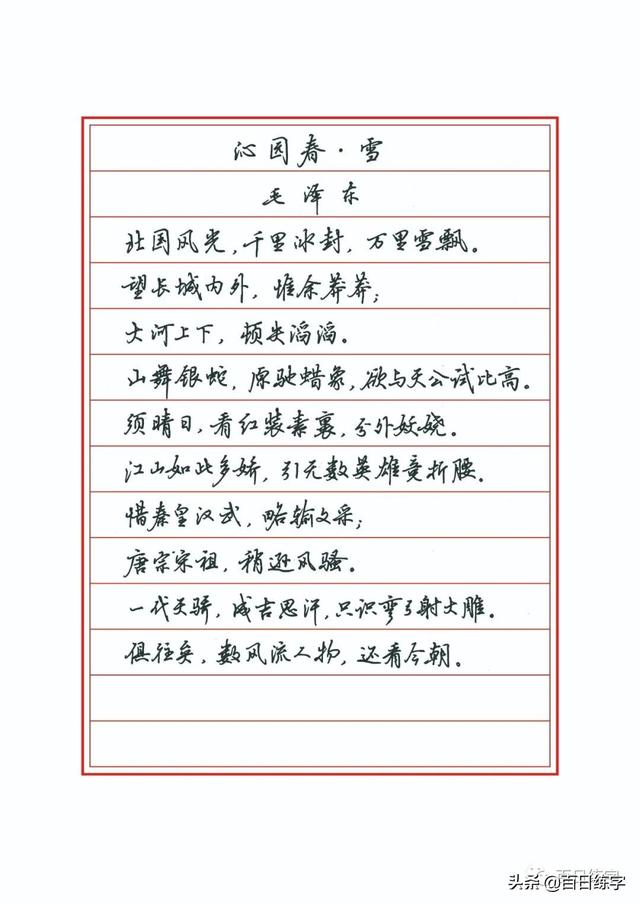 沁园春·雪
毛泽东
北国风光,千里冰封,万里雪飘。
望长城内外,惟余莽莽;
大河上下,顿失滔滔。
山舞银蛇,原驰蜡象,欲与天公试比高。
须晴日,看红装素裹,分外妖娆。
江山如此多娇,引无数英雄竞折腰。
惜秦皇汉武,略输文采;
唐宗宋祖,稍逊风骚。
一代天骄,成吉思汗,只识弯弓射大雕。
俱往矣,数风流人物,还看今朝。
百日练字
头条 @百日练字